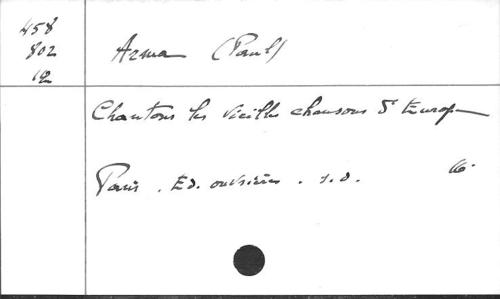 458
802
12
Arma (Paul)
Chantons les vieilles chansons d'Europe
Paris. Ed. ouvrières. s.d.